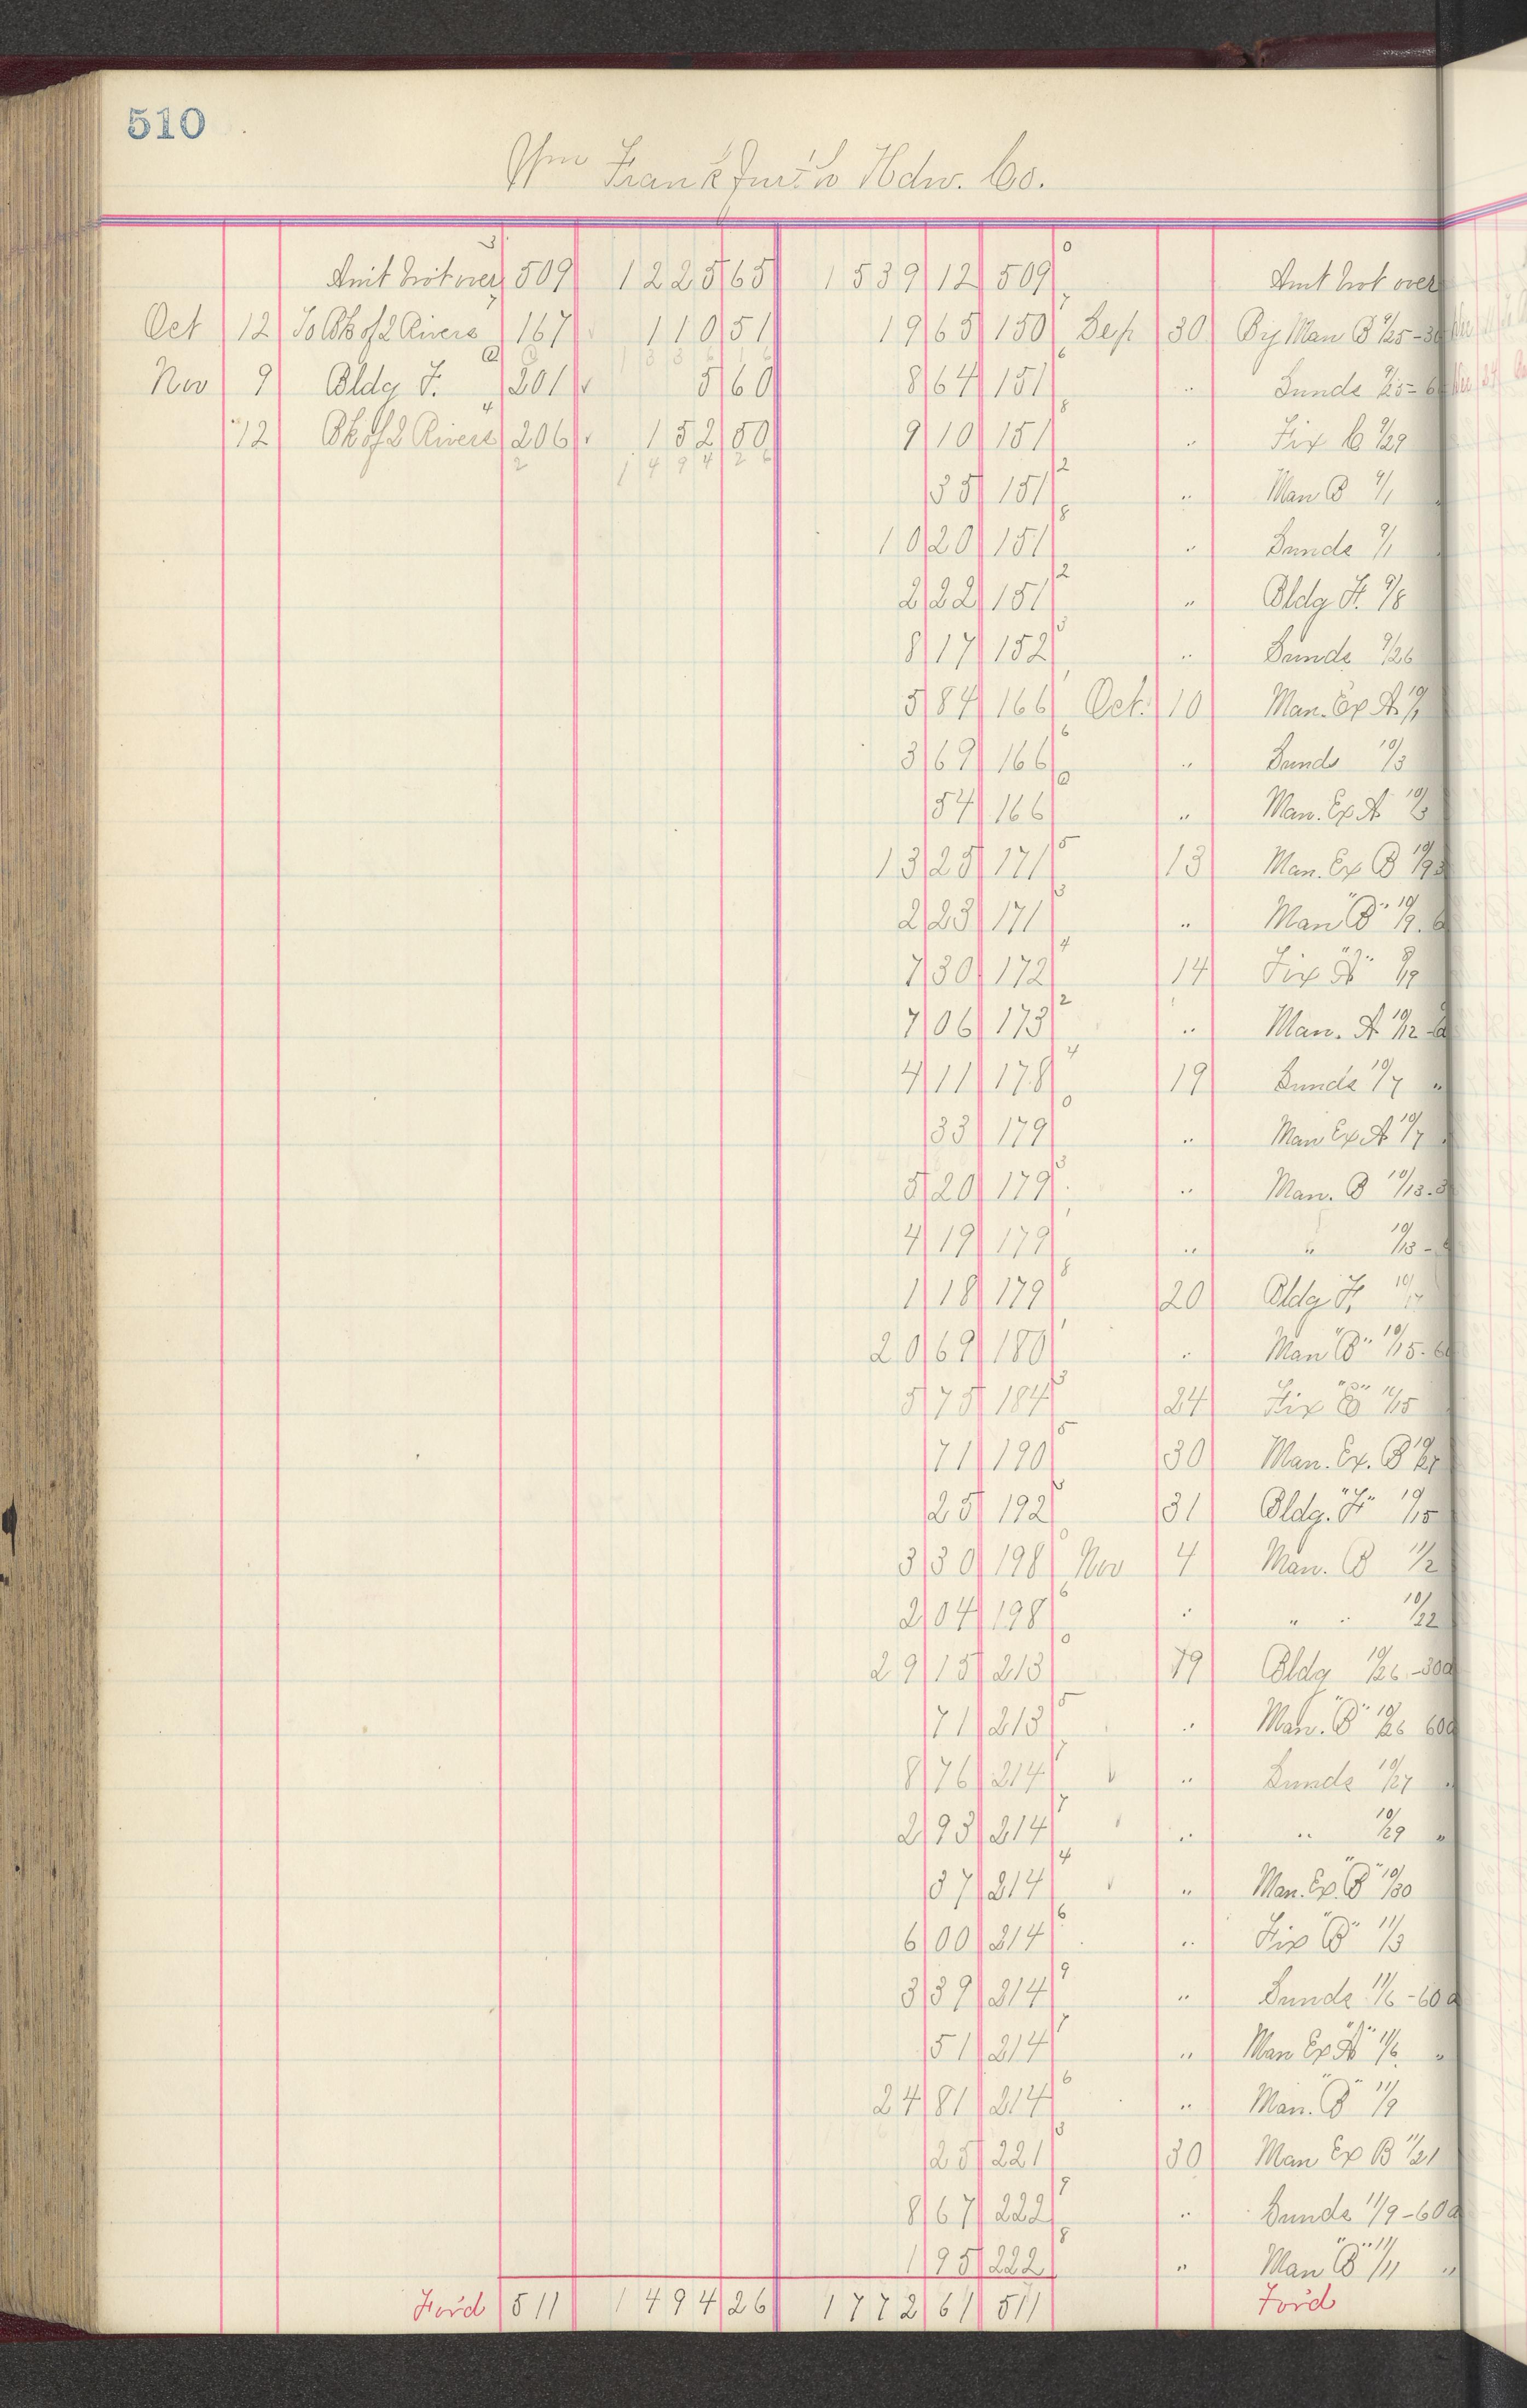 510
Wm Frankfurth Hdw. Co.
Amt brot over 509 1225 65 1539 12 509 Amt brot over
Oct 12 To Bk of 2 Rivers 167 110 51 19 65 150 Sep 30 By Man B 9/25-30
1336 16
Nov 9 Bldg F. 201 5 60 8 64 151 " Sunds 9/25-6
" 12 Bk of 2 Rivers 206 152 50 9 10 151 " Fix B 9/29
1494 26
35 151 " Man B 9/1
10 20 151 " Sunds 9/1
2 22 151 " Bldg F. 9/8
8 17 152 " Sunds 9/26
5 84 166 Oct. 10 Man. Ex A 10/1
3 69 166 " Sunds 10/3
54 166 " Man. Ex A 10/3
13 25 171 13 Man. Ex B 10/9
2 23 171 " Man "B" 10/9.
7 30 172 14 Fix "A" 9/19
7 06 173 " Man. A 10/12
4 11 178 19 Sunds 10/7 "
33 179 " Man Ex A 10/7
5 20 179 " Man. B 10/13.
4 19 179 " " 10/13 -
1 18 179 20 Bldg F. 10/17
20 69 180 " Man "B" 10/15.
5 75 184 24 Fix "B" 10/15
71 190 30 Man. Ex. B 10/21
25 192 31 Bldg. "F" 10/15
3 30 198 Nov 4 Man. B 11/2
2 04 198 " " " 10/22
29 15 213 19 Bldg 10/26 -30d
71 213 " Man. "B" 10/26 60d
8 76 214 " Sunds 10/27 "
2 93 214 " " 10/29 "
57 214 " Man. Ex. "B" 10/30
6 00 214 " Fix "B" 11/3
3 39 214 " Sunds 11/6 -60d
51 214 " Man Ex "A" 11/6 "
24 81 214 " Man. "B" 11/9
25 221 30 Man Ex B 11/21
8 67 222 " Sunds 11/9 -60d
1 95 222 " Man "B" 11/11 "
For'd 511 1494 26 1772 61 511 For'd